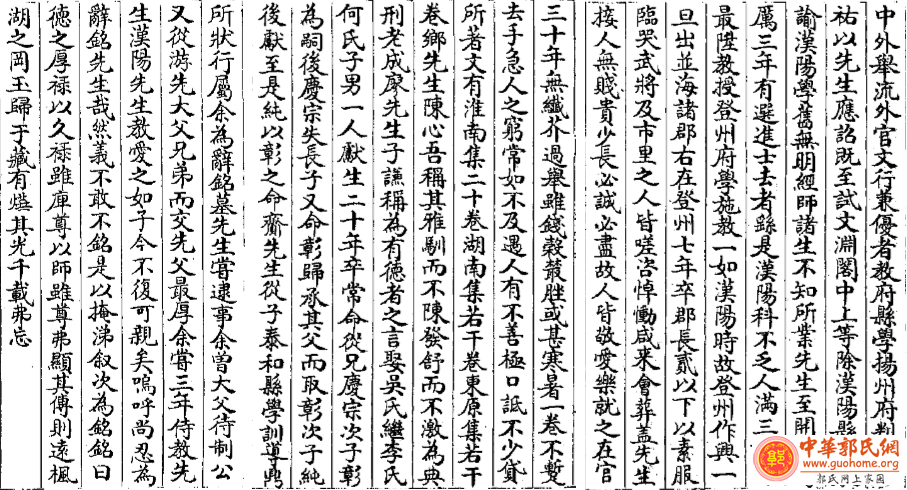 中外舉流外官文行兼優者教府縣學揚州府判
祐以先生應詔既至試文淵閣中上等除漢陽縣
諭漢陽學舊無明經師諸生不知所業先生至開
厲三年有選進士去者繇是漢陽科不乏人滿三
最陞教授登州府學施教一如漢陽時故登州作興一
旦出並海諸郡右在登州七年卒郡長貳以下以素服
臨哭武將及市里之人皆嗟咨悼慟咸來會葬蓋先生
接人無賤貴少長必誠必盡故人皆敬愛樂就之在官
三十年無纖介過舉雖錢穀叢脞或甚寒暑一卷不蹔
去手急人之窮常如不及遇人有不善極口詆不少貸
所著文有淮南集二十卷湖南集若干卷東原集若干
卷鄉先生陳心吾稱其雅馴而不陳發舒而不激為典
刑老成廖先生子謙稱為有德者之言娶吳氏繼李氏
何氏子男一人獻生二十年卒常命從兄慶宗次子彰
為嗣後慶宗失長子又命彰歸承其父而取彰次子純
後獻至是純以彰之命齎先生從子泰和縣學訓導鼎
所狀行屬余為辭銘墓先生嘗逮事余曾大父待制公
又從游先大父兄弟而交先父最厚余嘗三年侍教先
生漢陽先生教愛之如子今不復可親矣嗚呼尚忍為
辭銘先生哉然義不敢不銘是以掩涕叙次為銘銘曰
德之厚祿以久祿雖庳尊以師雖尊弗顯其傳則遠楓
湖之岡玉歸于藏有爗其光千載弗忘
中華郭氏網
www.guohome.org
郭氏网上家园